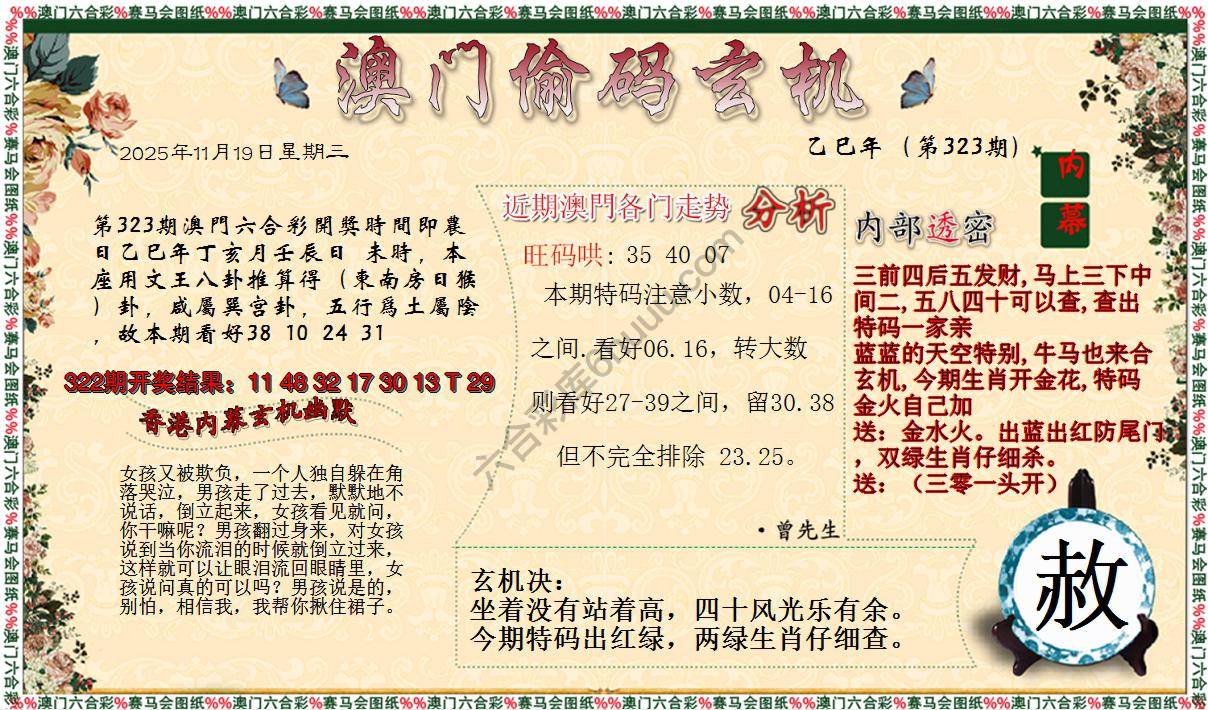 %%澳门六合彩%赛马会图纸%%澳门六合彩%赛马会图纸%%澳门六合彩%赛马会图纸%%澳门六合彩%赛马会图纸%%澳门六合彩%赛马会图纸%%澳门六合彩%赛马会图纸%%
澳门偷码玄机
2025年11月19日星期三
乙巳年（第323期）
内
幕
第323期澳門六合彩開獎時間即農
日乙巳年丁亥月壬辰日 未時，本
座用文王八卦推算得（東南房日猴
）卦，咸屬巽宫卦，五行爲土屬陰
，故本期看好38 10 24 31
322期开奖结果：11 48 32 17 30 13 T 29
香港内幕玄机幽默
女孩又被欺负，一个人独自躲在角
落哭泣，男孩走了过去，默默地不
说话，倒立起来，女孩看见就问，
你干嘛呢？男孩翻过身来，对女孩
说到当你流泪的时候就倒立过来，
这样就可以让眼泪流回眼睛里，女
孩说问真的可以吗？男孩说是的，
别怕，相信我，我帮你揪住裙子。
近期澳門各门走势 分析
旺码哄：35 40 07
本期特码注意小数，04-16
之间.看好06.16，转大数
则看好27-39之间，留30.38
但不完全排除 23.25。
·曾先生
内部透密
三前四后五发财,马上三下中
间二,五八四十可以查,查出
特码一家亲
蓝蓝的天空特别,牛马也来合
玄机,今期生肖开金花,特码
金火自己加
送：金水火。出蓝出红防尾门
，双绿生肖仔细杀。
送：（三零一头开）
玄机决：
坐着没有站着高，四十风光乐有余。
今期特码出红绿，两绿生肖仔细查。
赦
%%澳门六合彩%赛马会图纸%%澳门六合彩%赛马会图纸%%澳门六合彩%赛马会图纸%%澳门六合彩%赛马会图纸%%澳门六合彩%赛马会图纸%%澳门六合彩%赛马会图纸%%